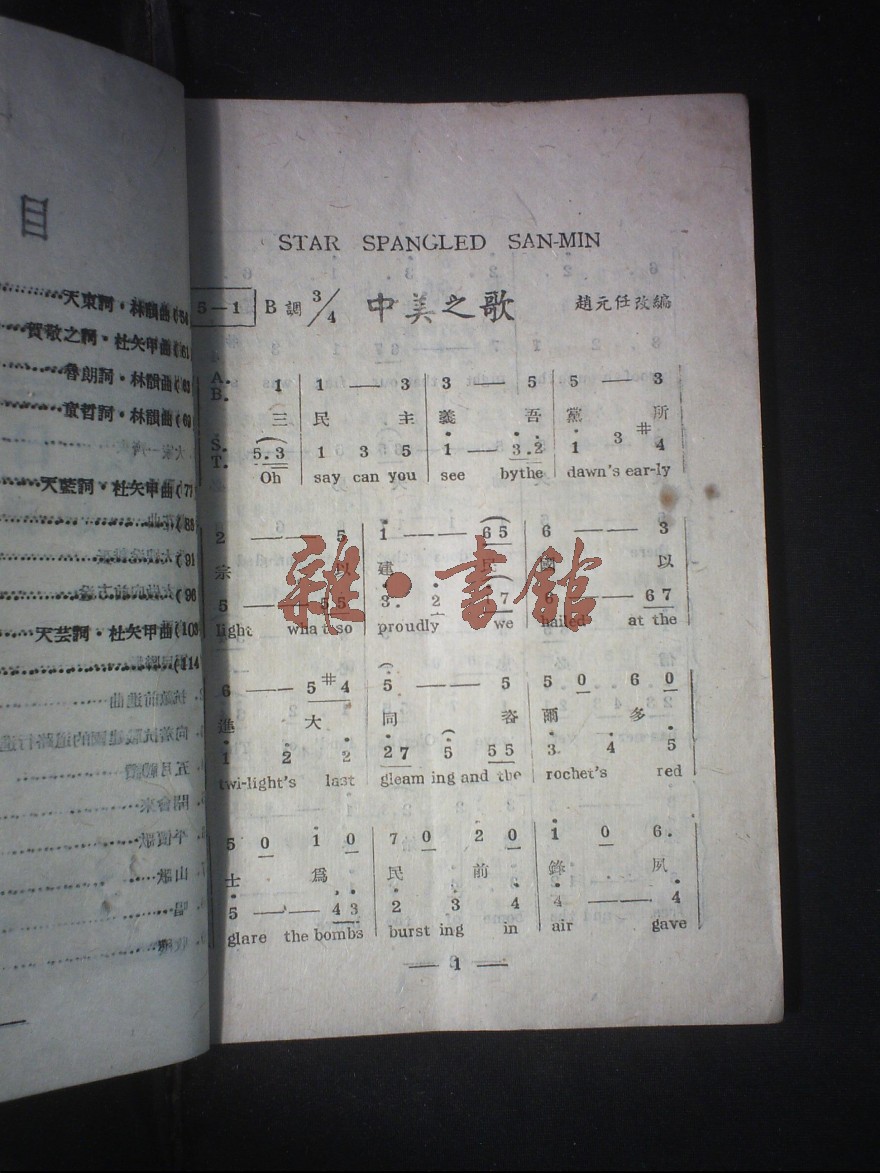 STAR SPANGLED SAN-MIN
5—1 B調 3/4 中美之歌 趙元任改編
A. B. 1 1 — 3 3 — 5 5 — 3
三 民 主 義 吾 黨 所
S. T. 5.3 1 3 5 1 — 3.2 1 3 #4
Oh say can you see bythe dawn's ear-ly
2 —— 5 1 —— 65 6 —— 3
宗 以 建 民 國 以
5 —— 55 3. 2 7 6 —— 67
light what so proudly we hailed at the
6 —— 5#4 5 —— 5 50 60
進 大 同 咨 爾 多
1 2 2 27 5 55 3. 4 5
twi-light's last gleam ing and the rochet's red
50 10 70 20 10 6.
士 爲 民 前 鋒 夙
5 —— 43 2 3 4 4 —— 4
glare the bombs burst ing in air gave
— 1 —
雜·書館
目
天東詞·林韻曲(54
賀敬之詞·杜矢甲曲(61
魯朗詞·林韻曲(63
童哲詞·林韻曲(69
天藍詞·杜矢甲曲(77
(88
(91
(96
天芸詞·杜矢甲曲(108
(114